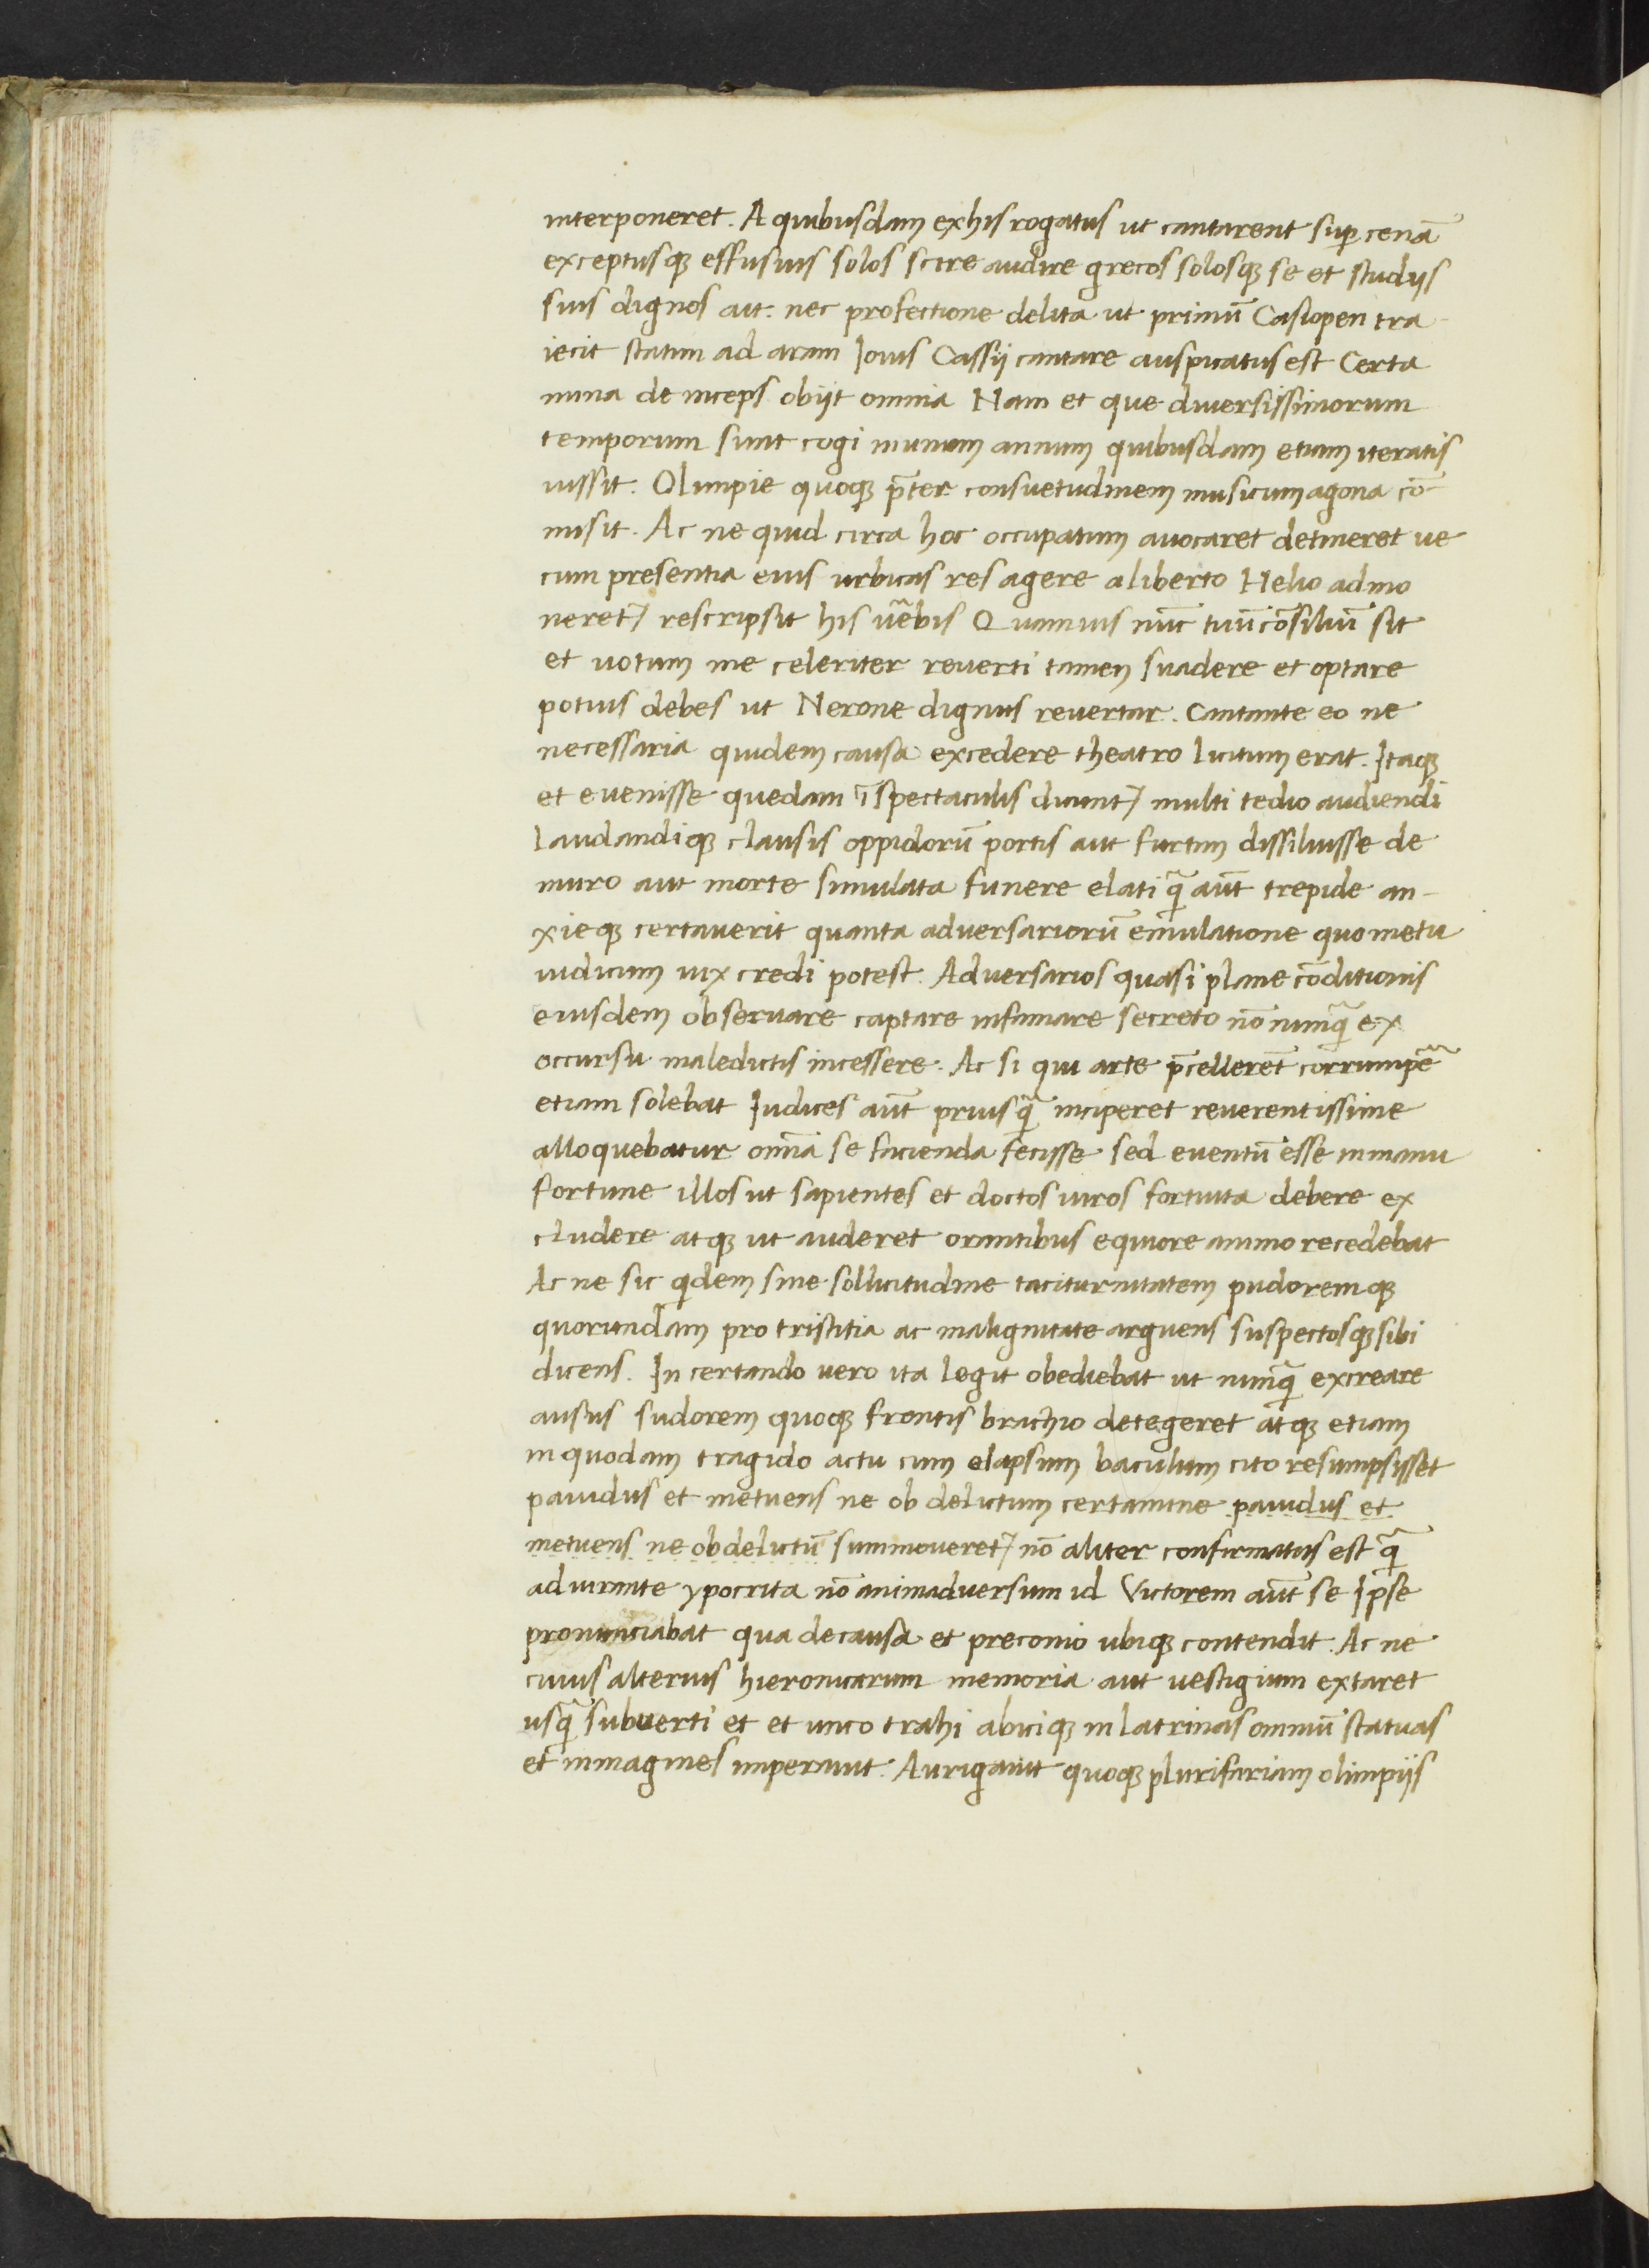 interponeret. A quibusdam exhis rogatus ut cantarent sup cenā
exceptusqꝫ effusius solos scire audire grecos solosqꝫ se et studijs
suis dignos ait. nec profectione delita ut primū Casiopen tra-
iecit statim ad aram Iouis Cassij cantare auspicatus est Certa
mina deinceps obijt omnia Nam et que diuersissimorum
temporum sunt cogi inunum annum quibusdam etiam iteratis
iussit. Olimpie quoqꝫ p̄ter consuetudinem musicum agona cō-
misit. Ac ne quid circa hoc occupatum auocaret detineret ue
cum presentia eius urbicas res agere aliberto Helio admo
neret᷑ rescripsit his ūbis Quamuis nūc tuū cōsiliū sit
et uotum me celeriter reuerti tamen suadere et optare
potius debes ut Nerone dignus reuertar. Cantante eo ne
necessaria quidem causa excedere theatro licitum erat. Itaqꝫ
et euenisse quedam ī spectaculis dicunt᷑ multi tedio audiendi
laudandiqꝫ clausis oppidorū portis aut furtim dissiluisse de
muro aut morte simulata funere elati q̄ aūt trepide an-
xieqꝫ certauerit quanta aduersariorū emulatione quo metu
iudicum uix credi potest. Aduersarios quasi plane cōditionis
eiusdem obseruare captare infamare secreto nō nunq̄ ex
occursu maledictis incessere. Ac si qui arte p̄cellerēt corrumpē
etiam solebat Iudices aūt priusq̄ inciperet reuerentissime
alloquebatur omīa se facienda fecisse sed euentū esse inmanu
fortune illos ut sapientes et doctos uiros fortuita debere ex
cludere atqꝫ ut auderet orantibus equiore animo recedebat
Ac ne sic qidem sine sollicitudine taciturnitatem pudoremqꝫ
quorundam pro tristitia ac malignitate arguens suspectosqꝫ sibi
dicens. In certando uero ita legit obediebat ut nunq̄ excreare
ausus sudorem quoqꝫ frontis brachio detegeret atqꝫ etiam
in quodam tragido actu cum elapsum baculum cito resumpsisset
pauidus et metuens ne ob delictum certamine pauidus et
metuens ne obdelictū summoueret᷑ nō aliter confirmatus est q̄
adiurante ypocrita nō animaduersum id Victorem aūt se Ipse
pronunciabat qua decausa et preconio ubiqꝫ contendit. Ac ne
cuius alterius hieronicarum memoria aut uestigium extaret
usq̄ subuerti et et unco trahi abiciqꝫ in latrinas omniū statuas
et inmagines imperauit. Aurigauit quoqꝫ plurifariam olimpijs